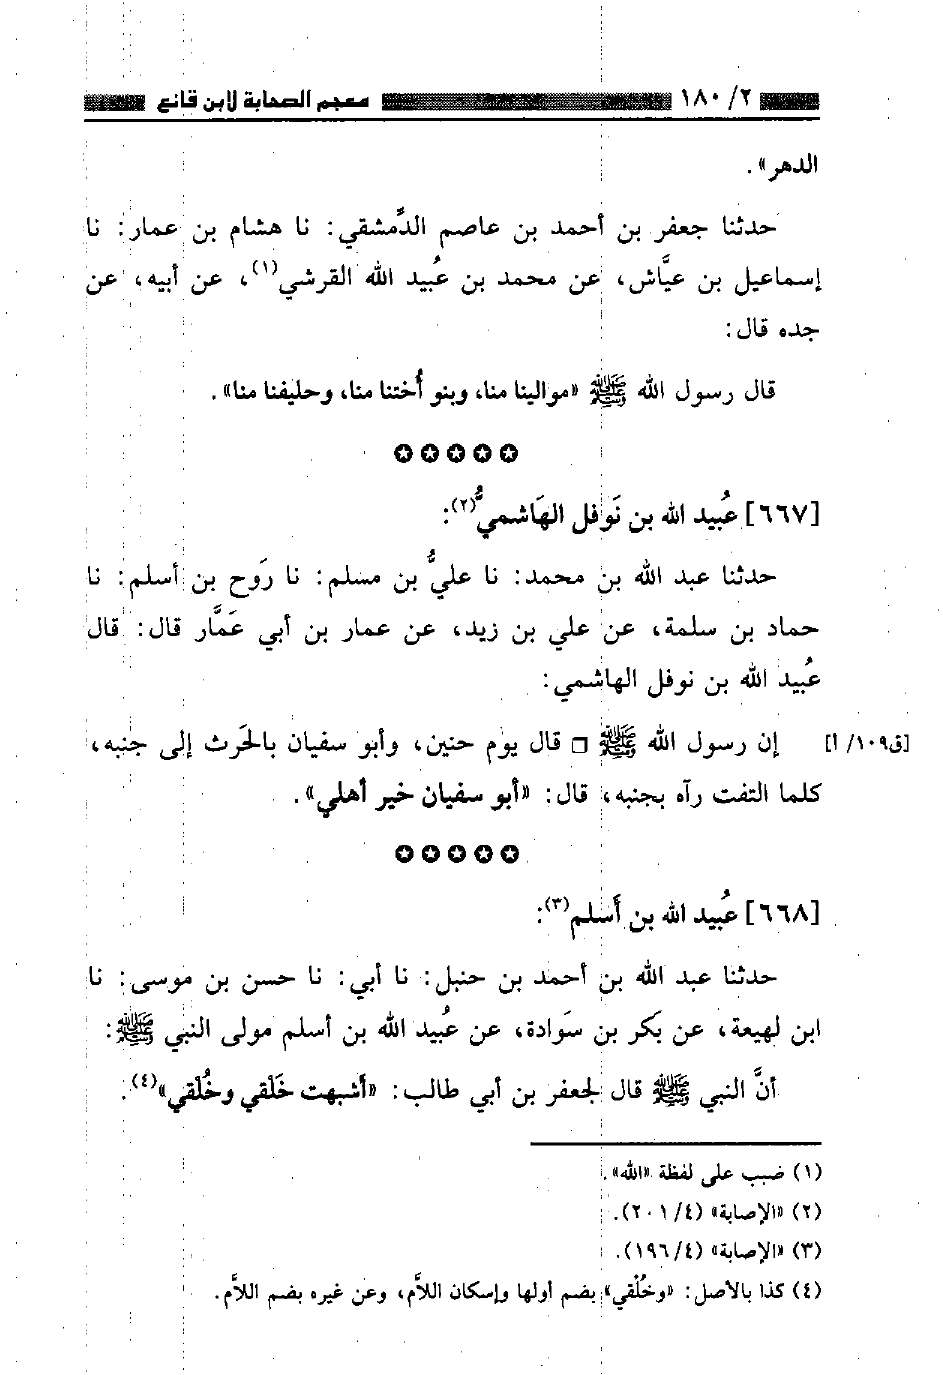 ٢/ ١٨٠ معجم الصحابة لابن قانع
الدهر».
حدثنا جعفر بن أحمد بن عاصم الدِّمشقي: نا هشام بن عمار: نا
إسماعيل بن عيَّاش، عن محمد بن عُبيد الله القرشي(١)، عن أبيه، عن
جده قال:
قال رسول الله ﷺ «موالينا منا، وبنو أُختنا منا، وحليفنا منا».
✪ ✪ ✪ ✪ ✪
[٦٦٧] عُبيد الله بن نَوفل الهَاشميُّ(٢):
حدثنا عبد الله بن محمد: نا عليُّ بن مسلم: نا رَوح بن أسلم: نا
حماد بن سلمة، عن علي بن زيد، عن عمار بن أبي عَمَّار قال: قال
عُبيد الله بن نوفل الهاشمي:
إن رسول الله ﷺ □ قال يوم حنين، وأبو سفيان بالحَرث إلى جنبه، [ق١٠٩/ أ]
كلما التفت رآه بجنبه، قال: «أبو سفيان خير أهلي».
✪ ✪ ✪ ✪ ✪
[٦٦٨] عُبيد الله بن أَسلم(٣):
حدثنا عبد الله بن أحمد بن حنبل: نا أبي: نا حسن بن موسى: نا
ابن لهيعة، عن بكر بن سَوادة، عن عُبيد الله بن أسلم مولى النبي ﷺ:
أنَّ النبي ﷺ قال لجعفر بن أبي طالب: «أَشبهت خَلْقي وخُلْقي»(٤).
(١) ضبب على لفظة «الله».
(٢) «الإصابة» (٤/ ٢٠١).
(٣) «الإصابة» (٤/ ١٩٦).
(٤) كذا بالأصل: «وخُلْقي» بضم أولها وإسكان اللاَّم، وعن غيره بضم اللاَّم.